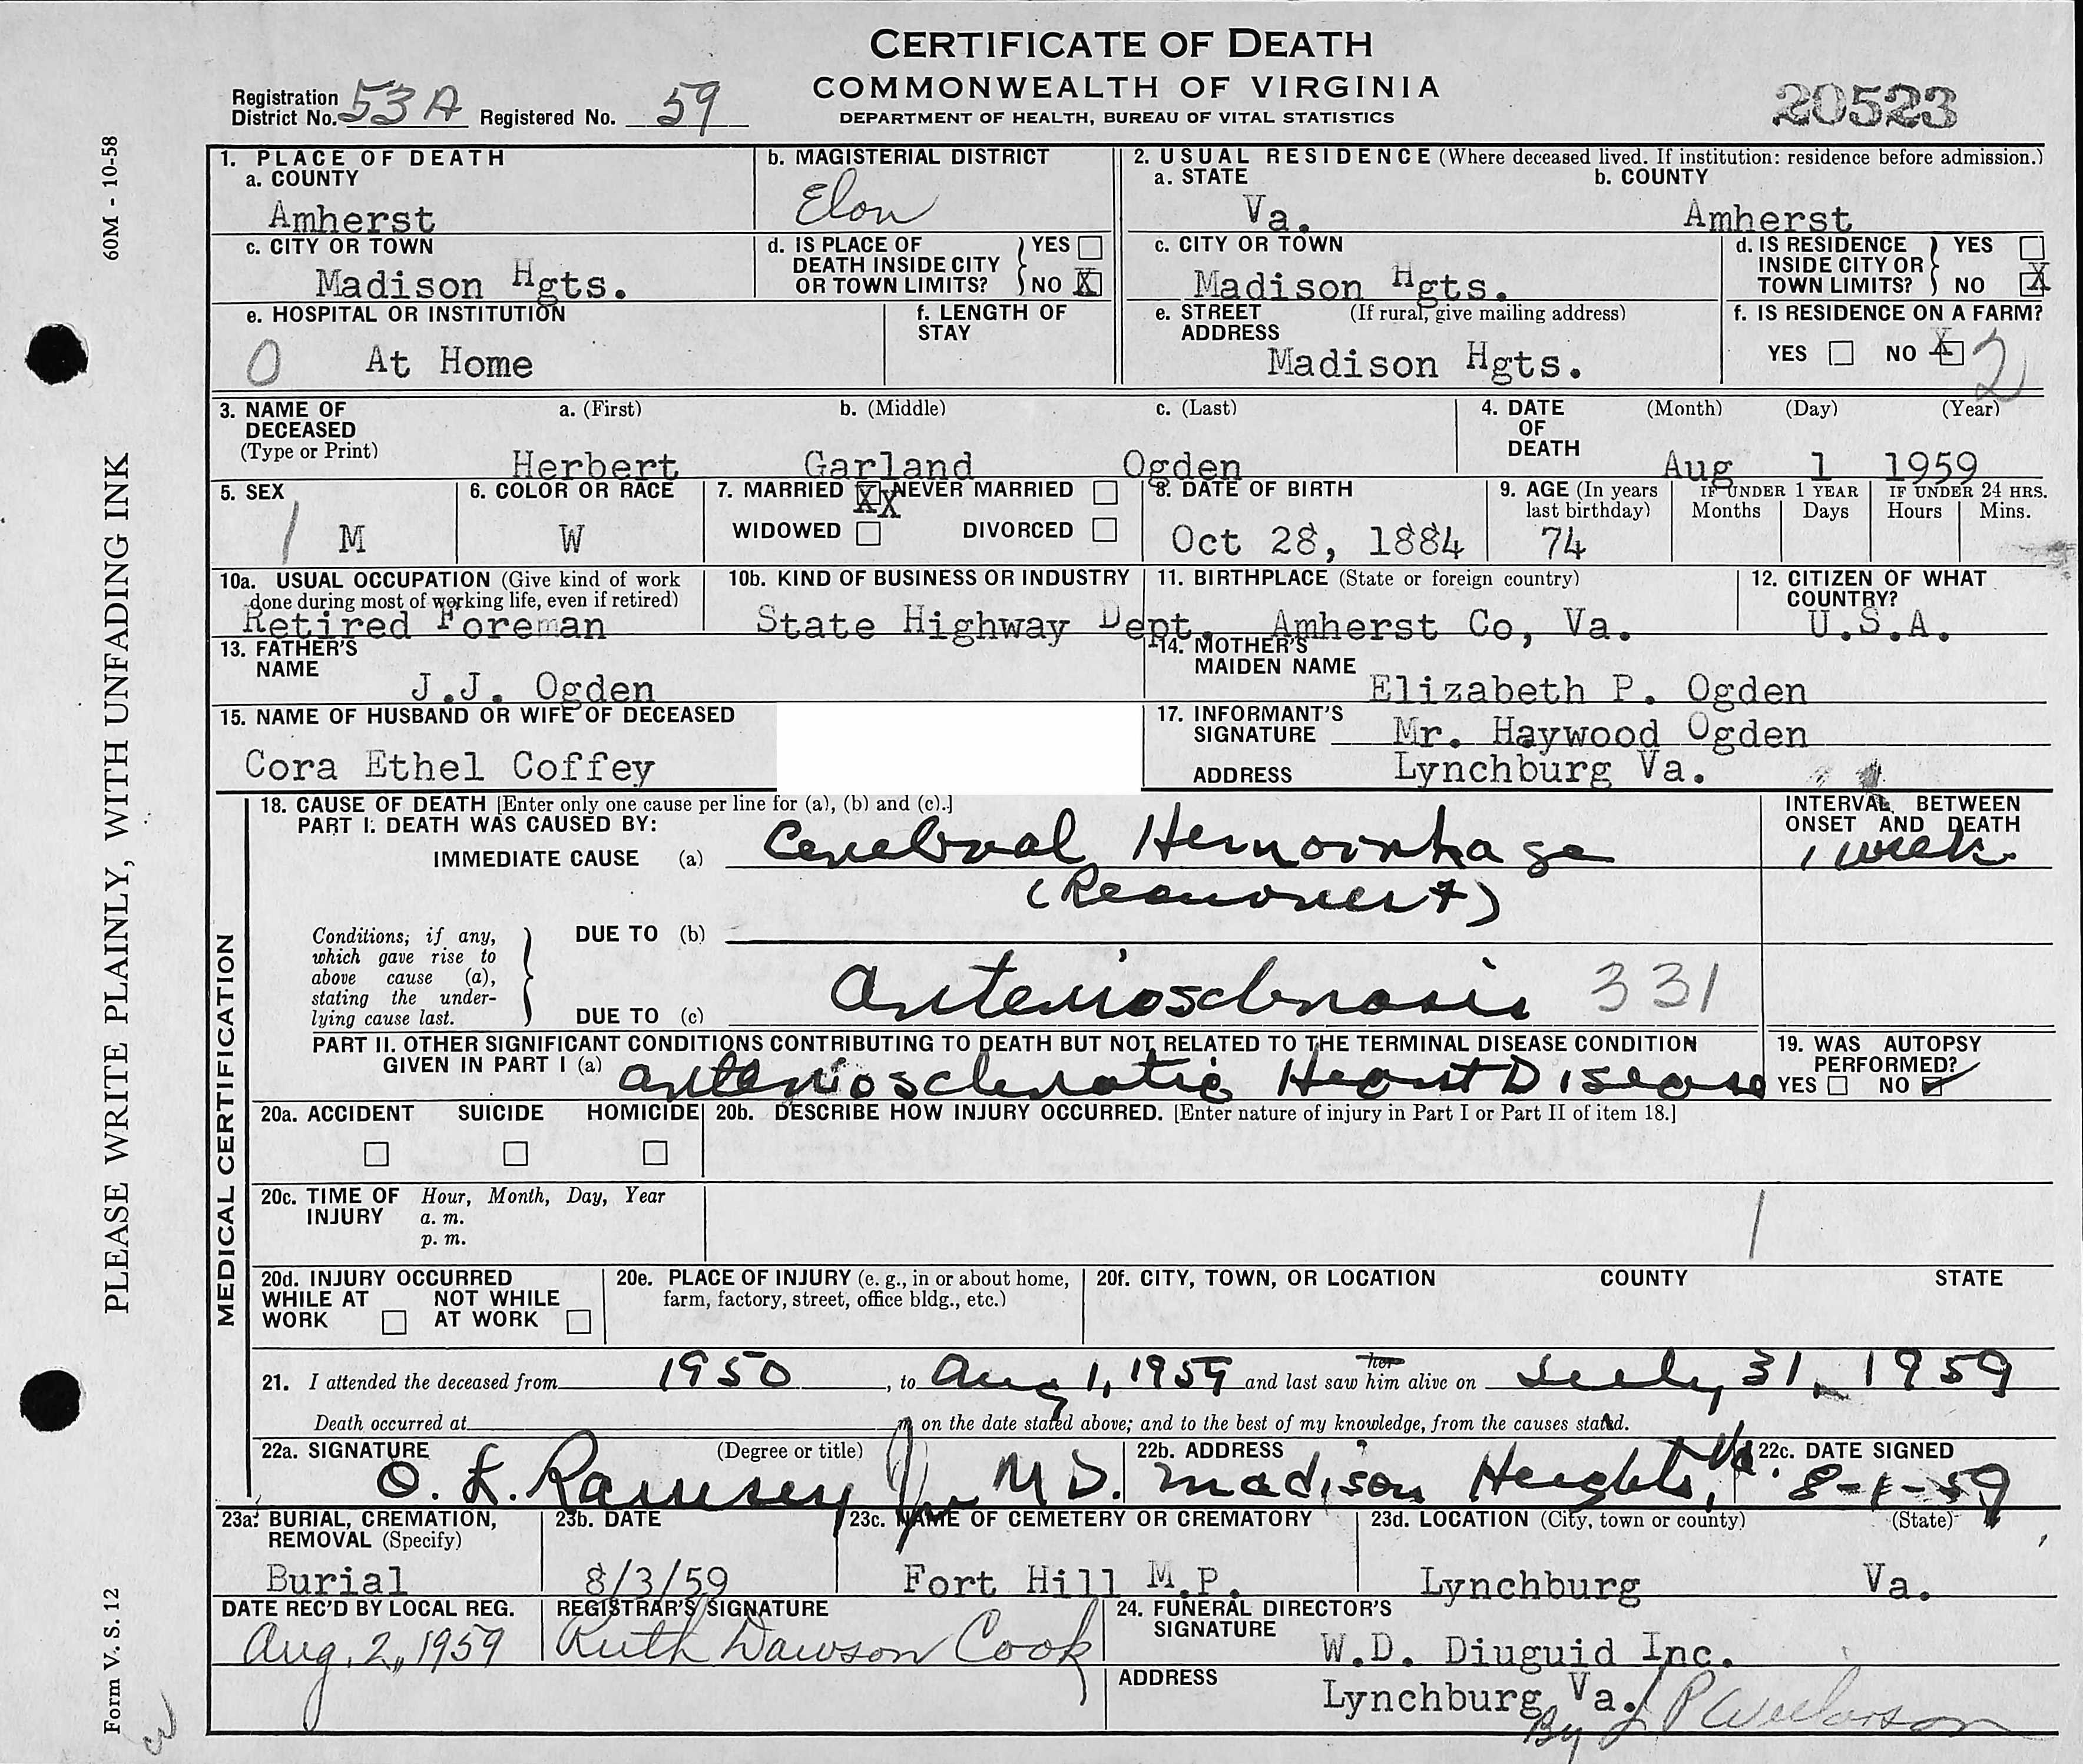 CERTIFICATE OF DEATH
COMMONWEALTH OF VIRGINIA
DEPARTMENT OF HEALTH, BUREAU OF VITAL STATISTICS
Registration District No. 53A Registered No. 59
20523
60M - 10-58
PLEASE WRITE PLAINLY, WITH UNFADING INK
Form V. S. 12
1. PLACE OF DEATH
a. COUNTY
Amherst
b. MAGISTERIAL DISTRICT
Elon
2. USUAL RESIDENCE (Where deceased lived. If institution: residence before admission.)
a. STATE
Va.
b. COUNTY
Amherst
c. CITY OR TOWN
Madison Hgts.
d. IS PLACE OF DEATH INSIDE CITY OR TOWN LIMITS? YES NO X
c. CITY OR TOWN
Madison Hgts.
d. IS RESIDENCE INSIDE CITY OR TOWN LIMITS? YES NO X
e. HOSPITAL OR INSTITUTION
0 At Home
f. LENGTH OF STAY
e. STREET ADDRESS (If rural, give mailing address)
Madison Hgts.
f. IS RESIDENCE ON A FARM?
YES NO X 2
3. NAME OF DECEASED (Type or Print)
a. (First) b. (Middle) c. (Last)
Herbert Garland Ogden
4. DATE OF DEATH (Month) (Day) (Year)
Aug 1 1959
5. SEX
1 M
6. COLOR OR RACE
W
7. MARRIED XX NEVER MARRIED
WIDOWED DIVORCED
8. DATE OF BIRTH
Oct 28, 1884
9. AGE (In years last birthday)
74
IF UNDER 1 YEAR
Months Days
IF UNDER 24 HRS.
Hours Mins.
10a. USUAL OCCUPATION (Give kind of work done during most of working life, even if retired)
Retired Foreman
10b. KIND OF BUSINESS OR INDUSTRY
State Highway Dept.
11. BIRTHPLACE (State or foreign country)
Amherst Co, Va.
12. CITIZEN OF WHAT COUNTRY?
U.S.A.
13. FATHER'S NAME
J.J. Ogden
14. MOTHER'S MAIDEN NAME
Elizabeth P. Ogden
15. NAME OF HUSBAND OR WIFE OF DECEASED
Cora Ethel Coffey
17. INFORMANT'S SIGNATURE Mr. Haywood Ogden
ADDRESS Lynchburg Va.
MEDICAL CERTIFICATION
18. CAUSE OF DEATH [Enter only one cause per line for (a), (b) and (c).]
PART I. DEATH WAS CAUSED BY:
IMMEDIATE CAUSE (a) Cerebral Hemorrhage
(Recurrent)
INTERVAL BETWEEN ONSET AND DEATH
1 week
Conditions, if any, which gave rise to above cause (a), stating the underlying cause last.
DUE TO (b)
DUE TO (c) Arteriosclerosis 331
PART II. OTHER SIGNIFICANT CONDITIONS CONTRIBUTING TO DEATH BUT NOT RELATED TO THE TERMINAL DISEASE CONDITION
GIVEN IN PART I (a) Arteriosclerotic Heart Disease
19. WAS AUTOPSY PERFORMED?
YES NO ✓
20a. ACCIDENT SUICIDE HOMICIDE
20b. DESCRIBE HOW INJURY OCCURRED. [Enter nature of injury in Part I or Part II of item 18.]
20c. TIME OF INJURY Hour, Month, Day, Year
a. m.
p. m.
1
20d. INJURY OCCURRED
WHILE AT WORK NOT WHILE AT WORK
20e. PLACE OF INJURY (e. g., in or about home, farm, factory, street, office bldg., etc.)
20f. CITY, TOWN, OR LOCATION COUNTY STATE
21. I attended the deceased from 1950, to Aug 1, 1959 and last saw her him alive on July 31, 1959
Death occurred at m on the date stated above; and to the best of my knowledge, from the causes stated.
22a. SIGNATURE (Degree or title)
O. L. Ramsey Jr MD.
22b. ADDRESS
Madison Heights, Va.
22c. DATE SIGNED
8-1-59
23a. BURIAL, CREMATION, REMOVAL (Specify)
Burial
23b. DATE
8/3/59
23c. NAME OF CEMETERY OR CREMATORY
Fort Hill M.P.
23d. LOCATION (City, town or county) (State)
Lynchburg Va.
DATE REC'D BY LOCAL REG.
Aug. 2, 1959
REGISTRAR'S SIGNATURE
Ruth Dawson Cook
24. FUNERAL DIRECTOR'S SIGNATURE
W.D. Diuguid Inc.
ADDRESS
Lynchburg Va.
By